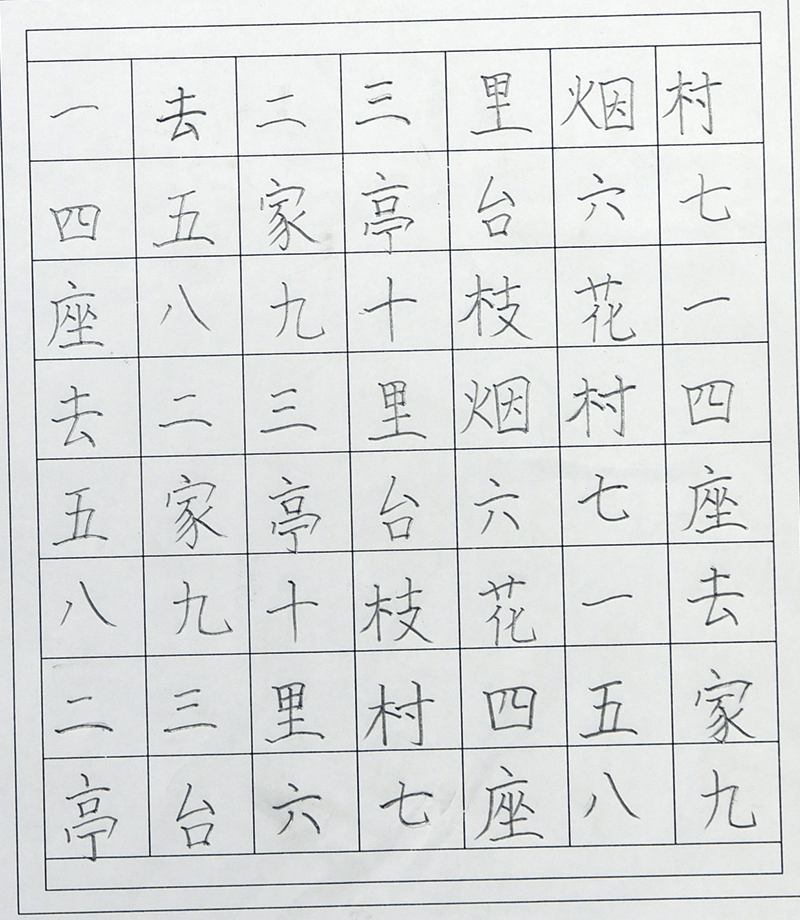 一去二三里烟村
四五家亭台六七
座八九十枝花一
去二三里烟村四
五家亭台六七座
八九十枝花一去
二三里村四五家
亭台六七座八九